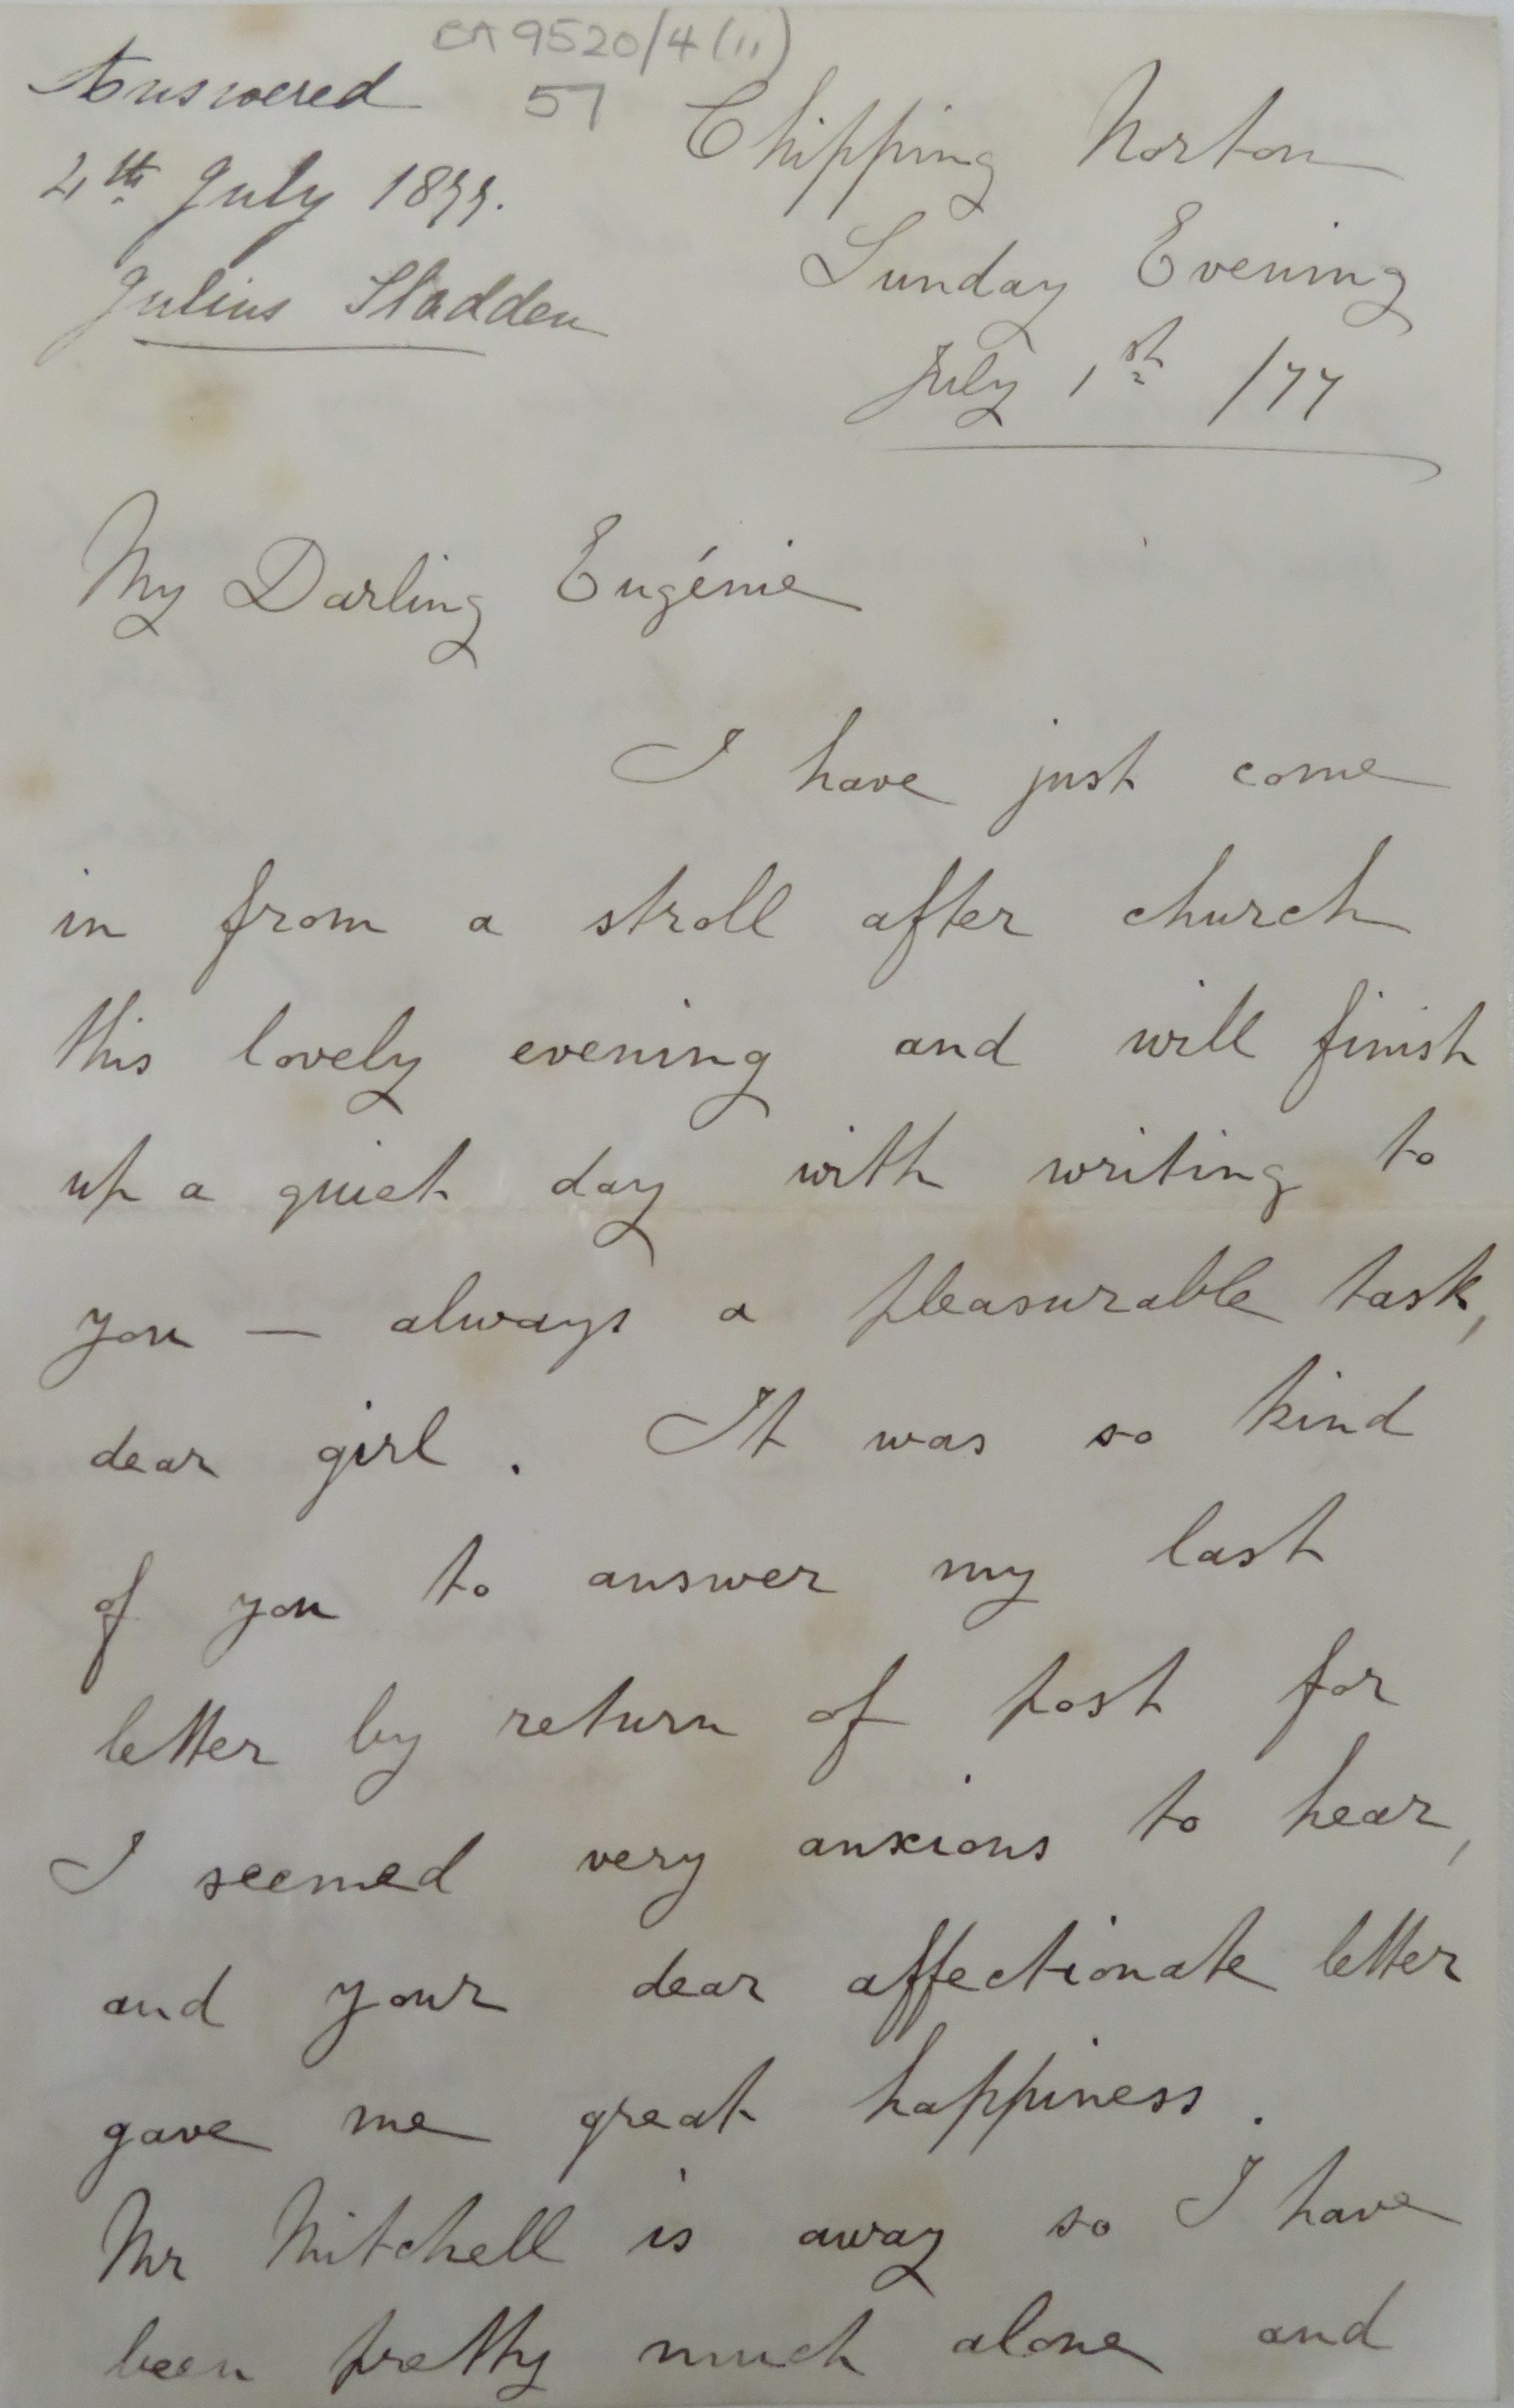 CA 9520/4 (11)
57
Answered
4th July 1877.
Julius Sladden
Chipping Norton
Sunday Evening
July 1st /77
My Darling Eugénie
I have just come
in from a stroll after church
this lovely evening and will finish
up a quiet day with writing to
you — always a pleasurable task,
dear girl. It was so kind
of you to answer my last
letter by return of post for
I seemed very anxious to hear,
and your dear affectionate letter
gave me great happiness.
Mr Mitchell is away so I have
been pretty much alone and